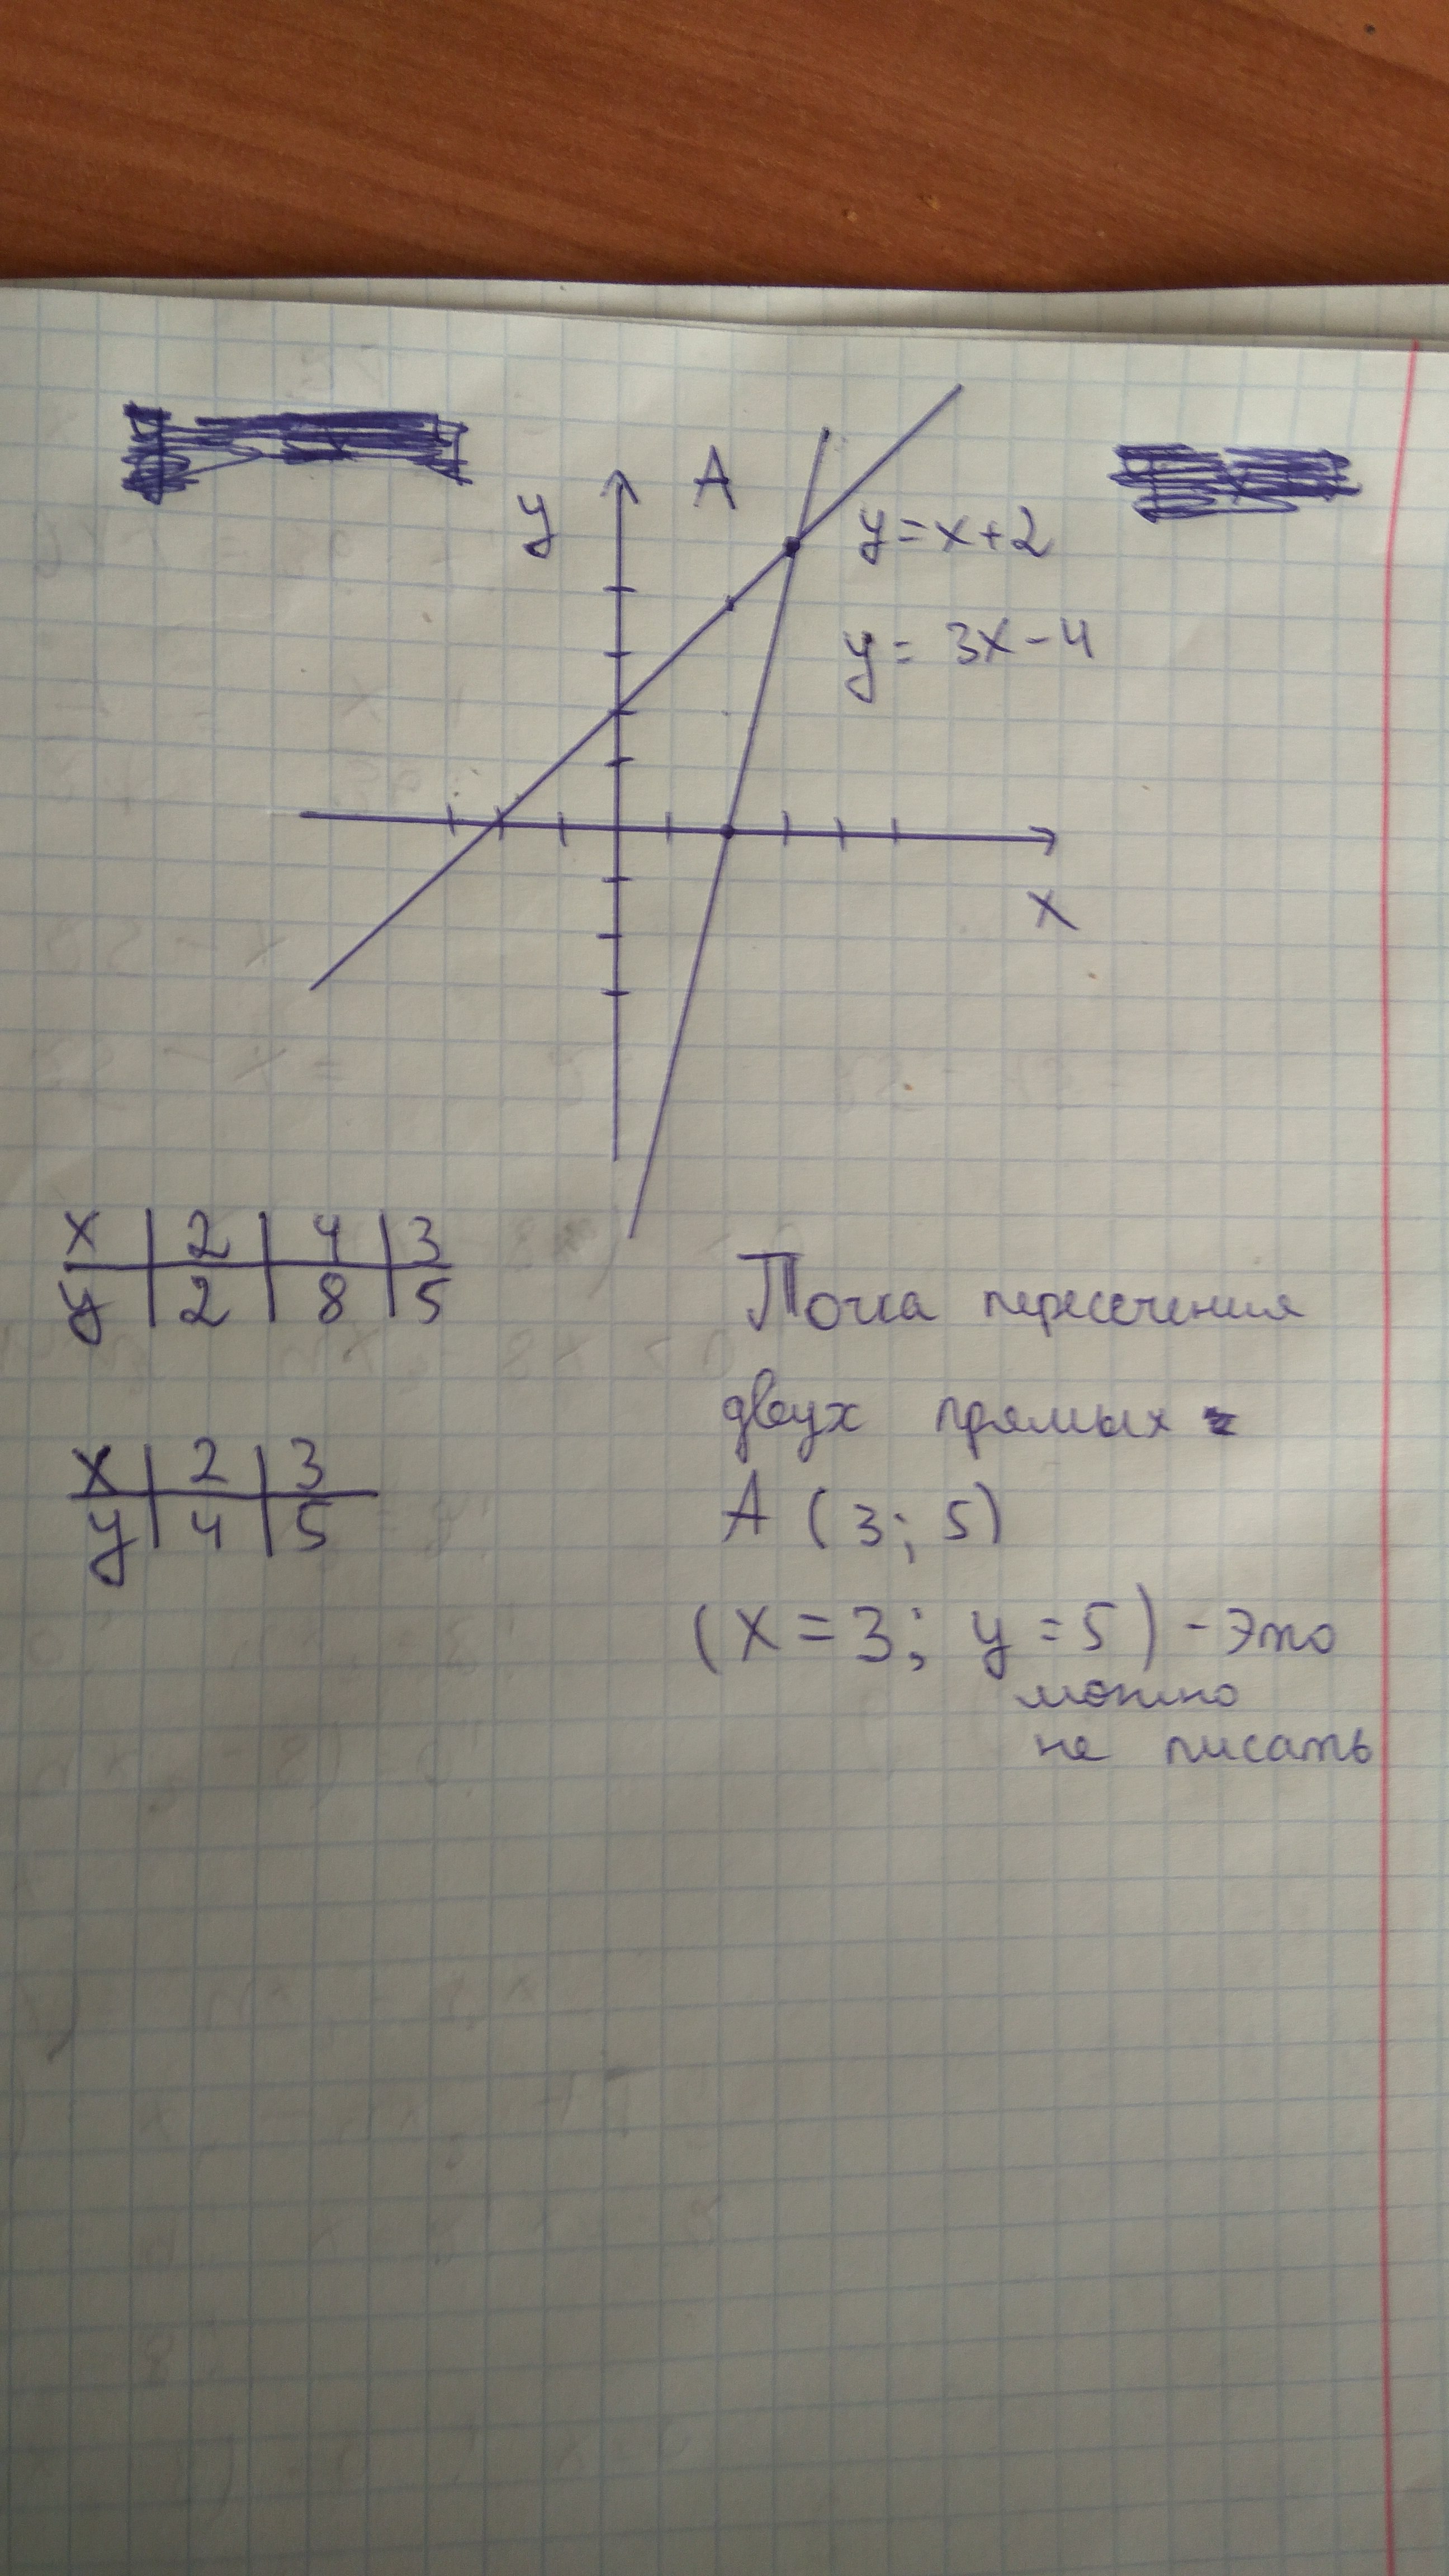 A
y
y=x+2
y= 3x-4
x
x | 2 | 4 | 3
y | 2 | 8 | 5
x | 2 | 3
y | 4 | 5
Точка пересечения
двух прямых -
A (3; 5)
(x=3; y=5) - Это
можно
не писать